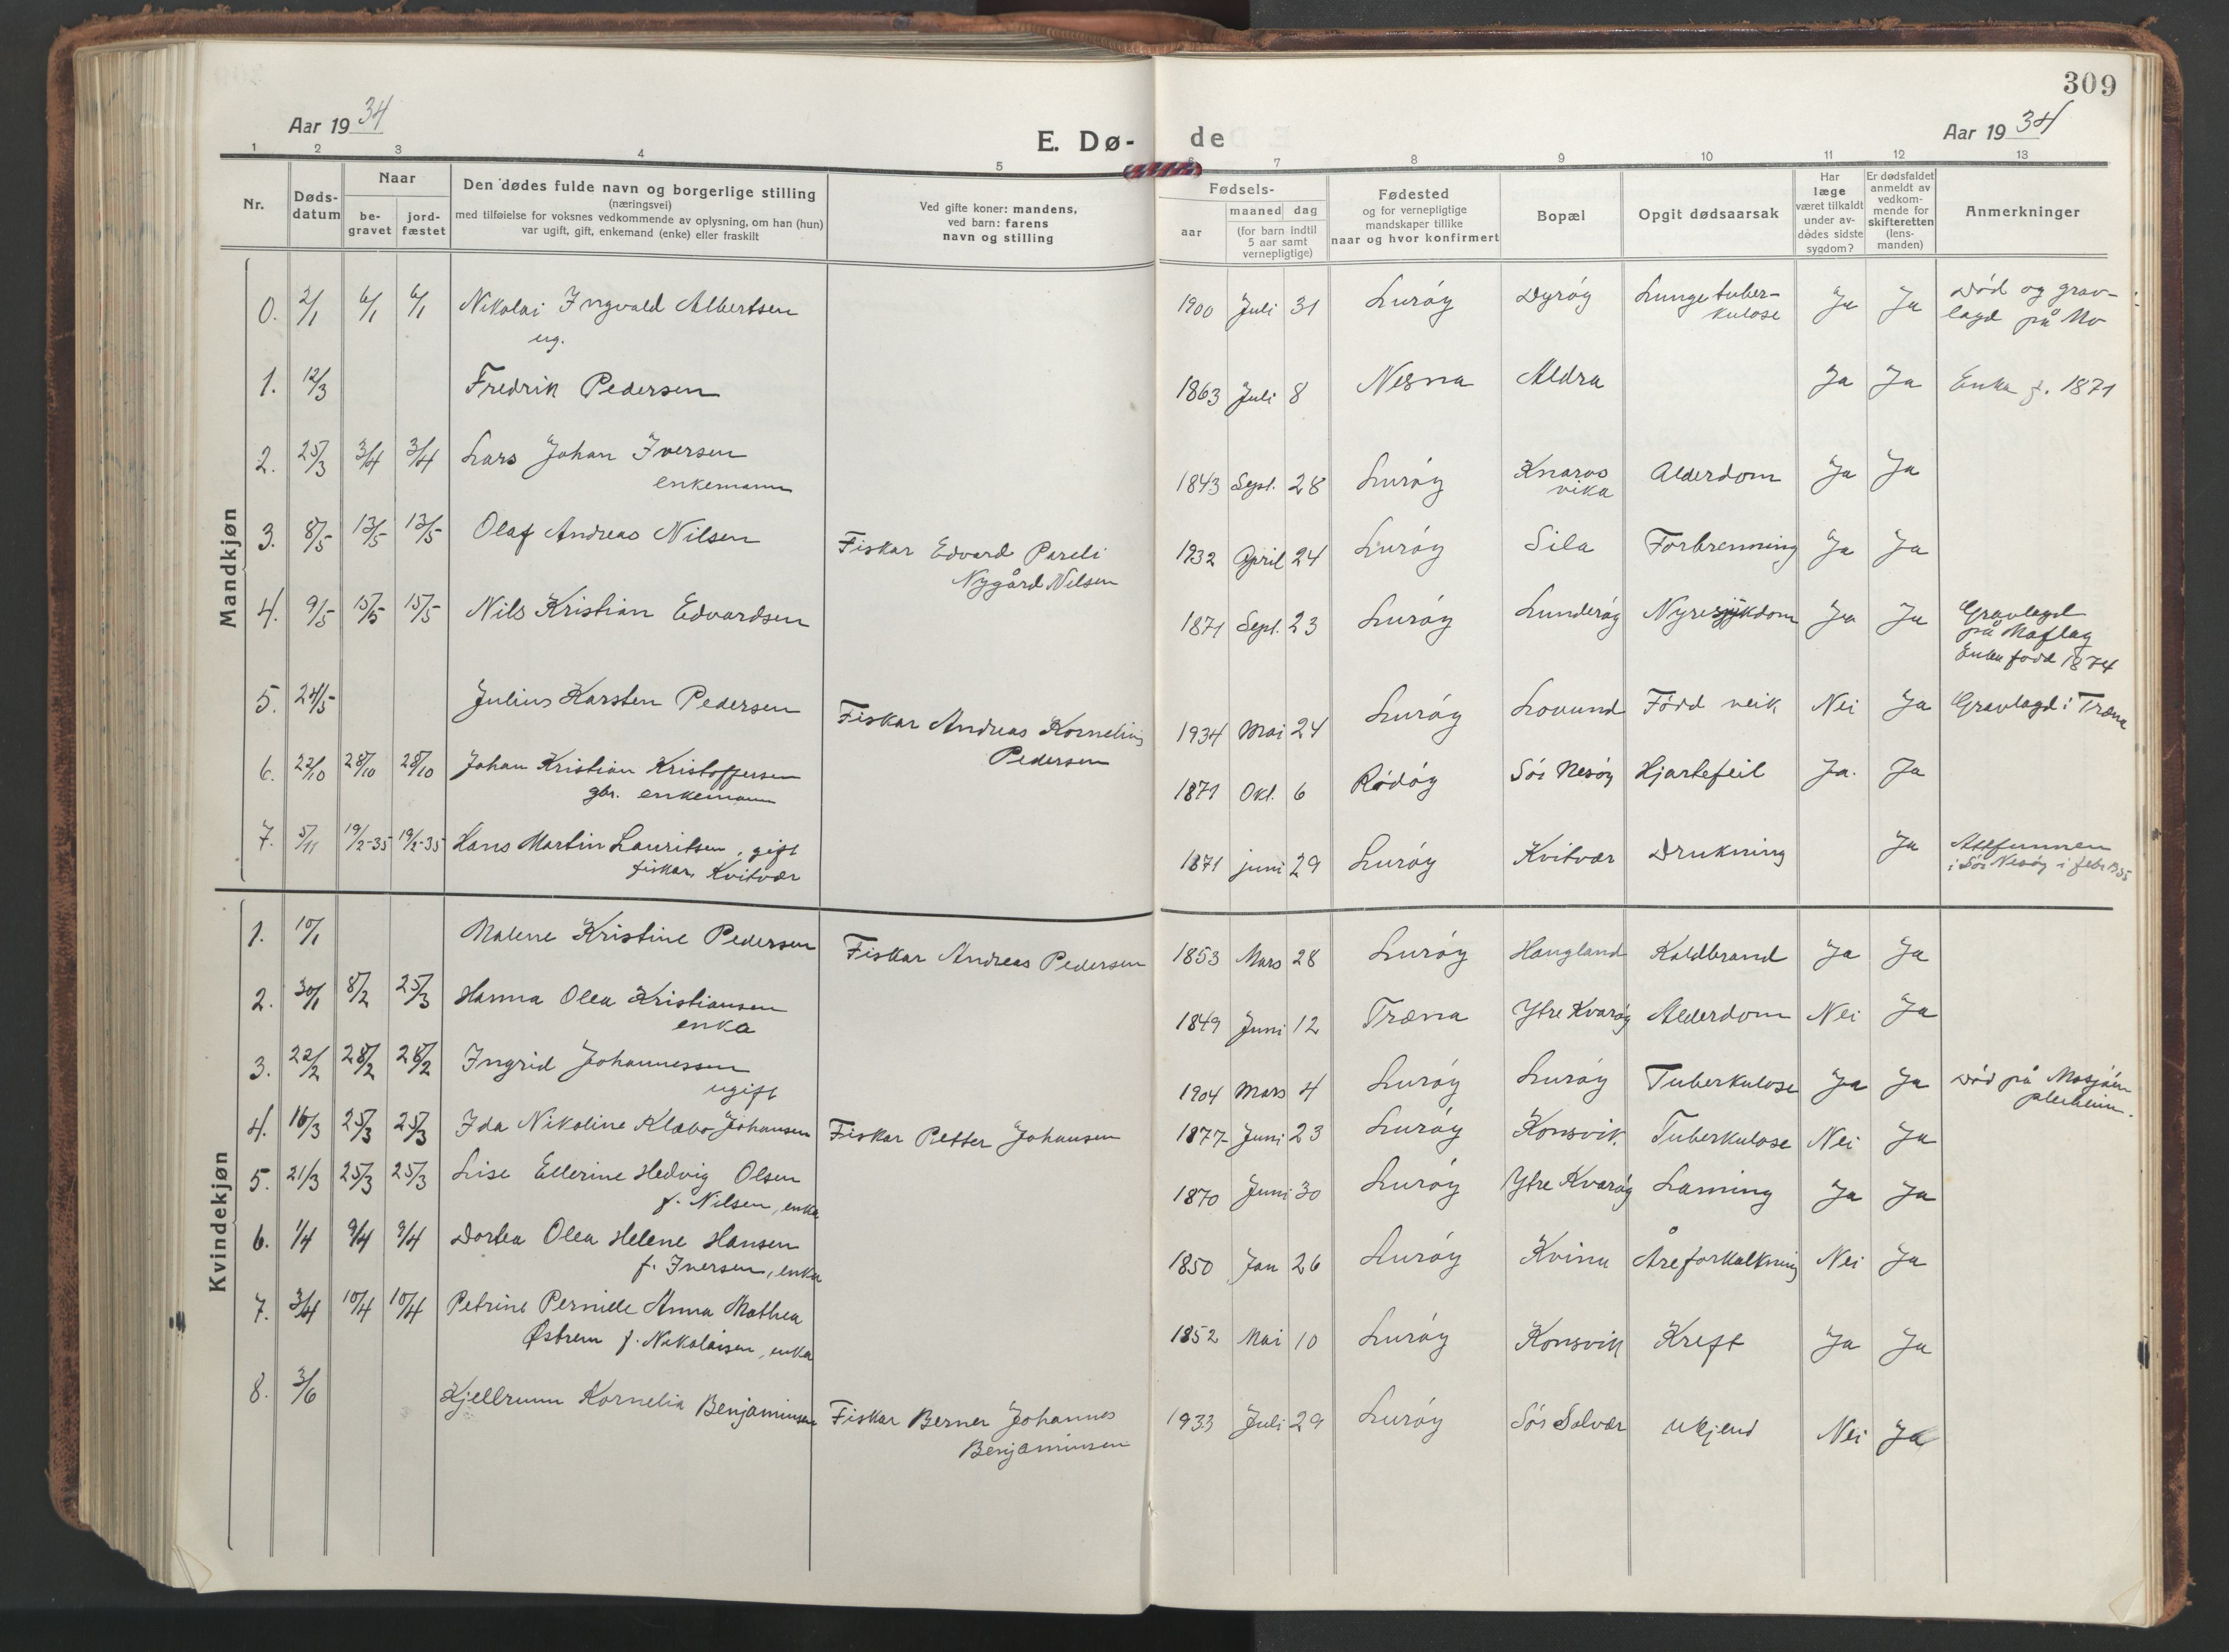 309
Aar 1934
E. Dø- de
Aar 1934
1 2 3 4 5 6 7 8 9 10 11 12 13
Nr.
Døds-
datum
Naar
be-
gravet
jord-
fæstet
Den dødes fulde navn og borgerlige stilling
(næringsvei)
med tilføielse for voksnes vedkommende av oplysning, om han (hun)
var ugift, gift, enkemand (enke) eller fraskilt
Ved gifte koner: mandens,
ved barn: farens
navn og stilling
Fødsels-
aar
maaned dag
(for barn indtil
5 aar samt
vernepligtige)
Fødested
og for vernepligtige
mandskaper tillike
naar og hvor konfirmert
Bopæl
Opgit dødsaarsak
Har
læge
været tilkaldt
under av-
dødes sidste
sygdom?
Er dødsfaldet
anmeldt av
vedkom-
mende for
skifteretten
(lens-
manden)
Anmerkninger
Mandkjøn
0. 2/1 6/1 6/1 Nikolai Ingvald Albertsen 1900 Juli 31 Lurøy Dyrøy Lungetuber- Ja Ja Død og grav-
ug. kulose lagd på Mo
1. 12/3 Fredrik Pedersen 1863 Juli 8 Nesna Aldra Ja Ja Enka f. 1871
2. 25/3 3/4 3/4 Lars Johan Iversen 1843 Sept. 28 Lurøy Knaros Alderdom Ja Ja
enkemann vika
3. 8/5 13/5 13/5 Olaf Andreas Nilsen Fiskar Edvard Pareli 1932 April 24 Lurøy Sila Forbrenning Ja Ja
Nygård Nilsen
4. 9/5 15/5 15/5 Nils Kristian Edvardsen 1871 Sept. 23 Lurøy Lunderøy Nyresjukdom Ja Ja Gravlagd
på Moflag
Enka født 1874
5. 24/5 Julius Karsten Pedersen Fiskar Andreas Kornelius 1934 Mai 24 Lurøy Lovund Født veik Nei Ja Gravlagd i Træna
Pedersen
6. 22/10 28/10 28/10 Johan Kristian Kristoffersen 1871 Okt. 6 Rødøy Sør Nesøy Hjartefeil Ja. Ja
gbr. enkemann
7. 5/11 19/2-35 19/2-35 Hans Martin Lauritsen, gift 1871 juni 29 Lurøy Kvitvær Drukning Ja Attfunnen
fiskar, Kvitvær i Sør Nesøy i febr 1935
Kvindekjøn
1. 10/1 Malene Kristine Pedersen Fiskar Andreas Pedersen 1853 Mars 28 Lurøy Haugland Kaldbrand Ja Ja
2. 30/1 8/2 25/3 Hanna Olea Kristiansen 1849 Juni 12 Træna Ytre Kvarøy Alderdom Nei Ja
enka
3. 22/2 28/2 28/2 Ingrid Johannessen 1904 Mars 4 Lurøy Lurøy Tuberkulose Ja Ja Død på Mosjøen
ugift pleieheim.
4. 16/3 25/3 25/3 Ida Nikoline Klæbo Johansen Fiskar Petter Johansen 1877 Juni 23 Lurøy Konsvik. Tuberkulose Nei Ja
5. 21/3 25/3 25/3 Lise Ellerine Hedvig Olsen 1870 Juni 30 Lurøy Ytre Kvarøy Laming Ja Ja
f. Nilsen, enka
6. 1/4 9/4 9/4 Dortea Olea Helene Hansen 1850 Jan 26 Lurøy Kvina Åreforkalkning Nei Ja
f. Iversen, enka
7. 3/4 10/4 10/4 Petrine Pernille Anna Mathea 1852 Mai 10 Lurøy Konsvik Kreft Ja Ja
Østrem f. Nikolaisen, enka
8. 3/6 Kjellrunn Kornelia Benjaminsen Fiskar Berner Johannes 1933 Juli 29 Lurøy Sør Solvær Ukjend Nei Ja
Benjaminsen